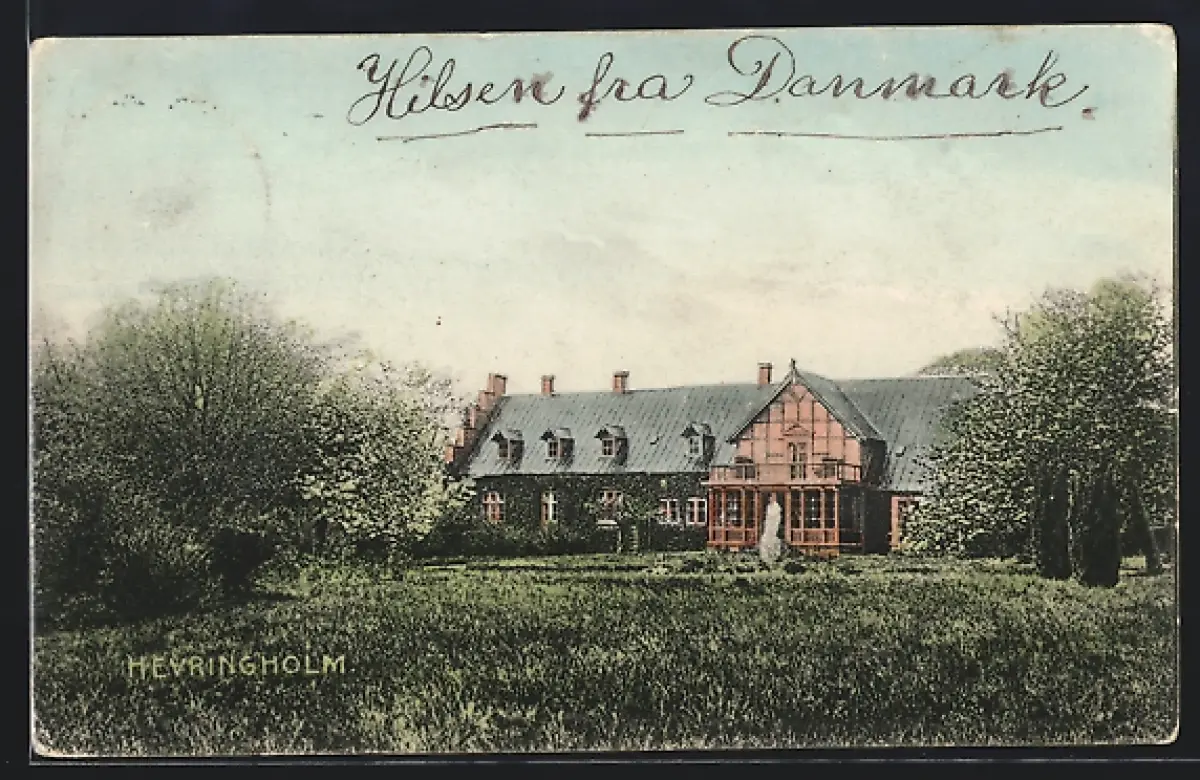 Hilsen fra Danmark.
HEVRINGHOLM.